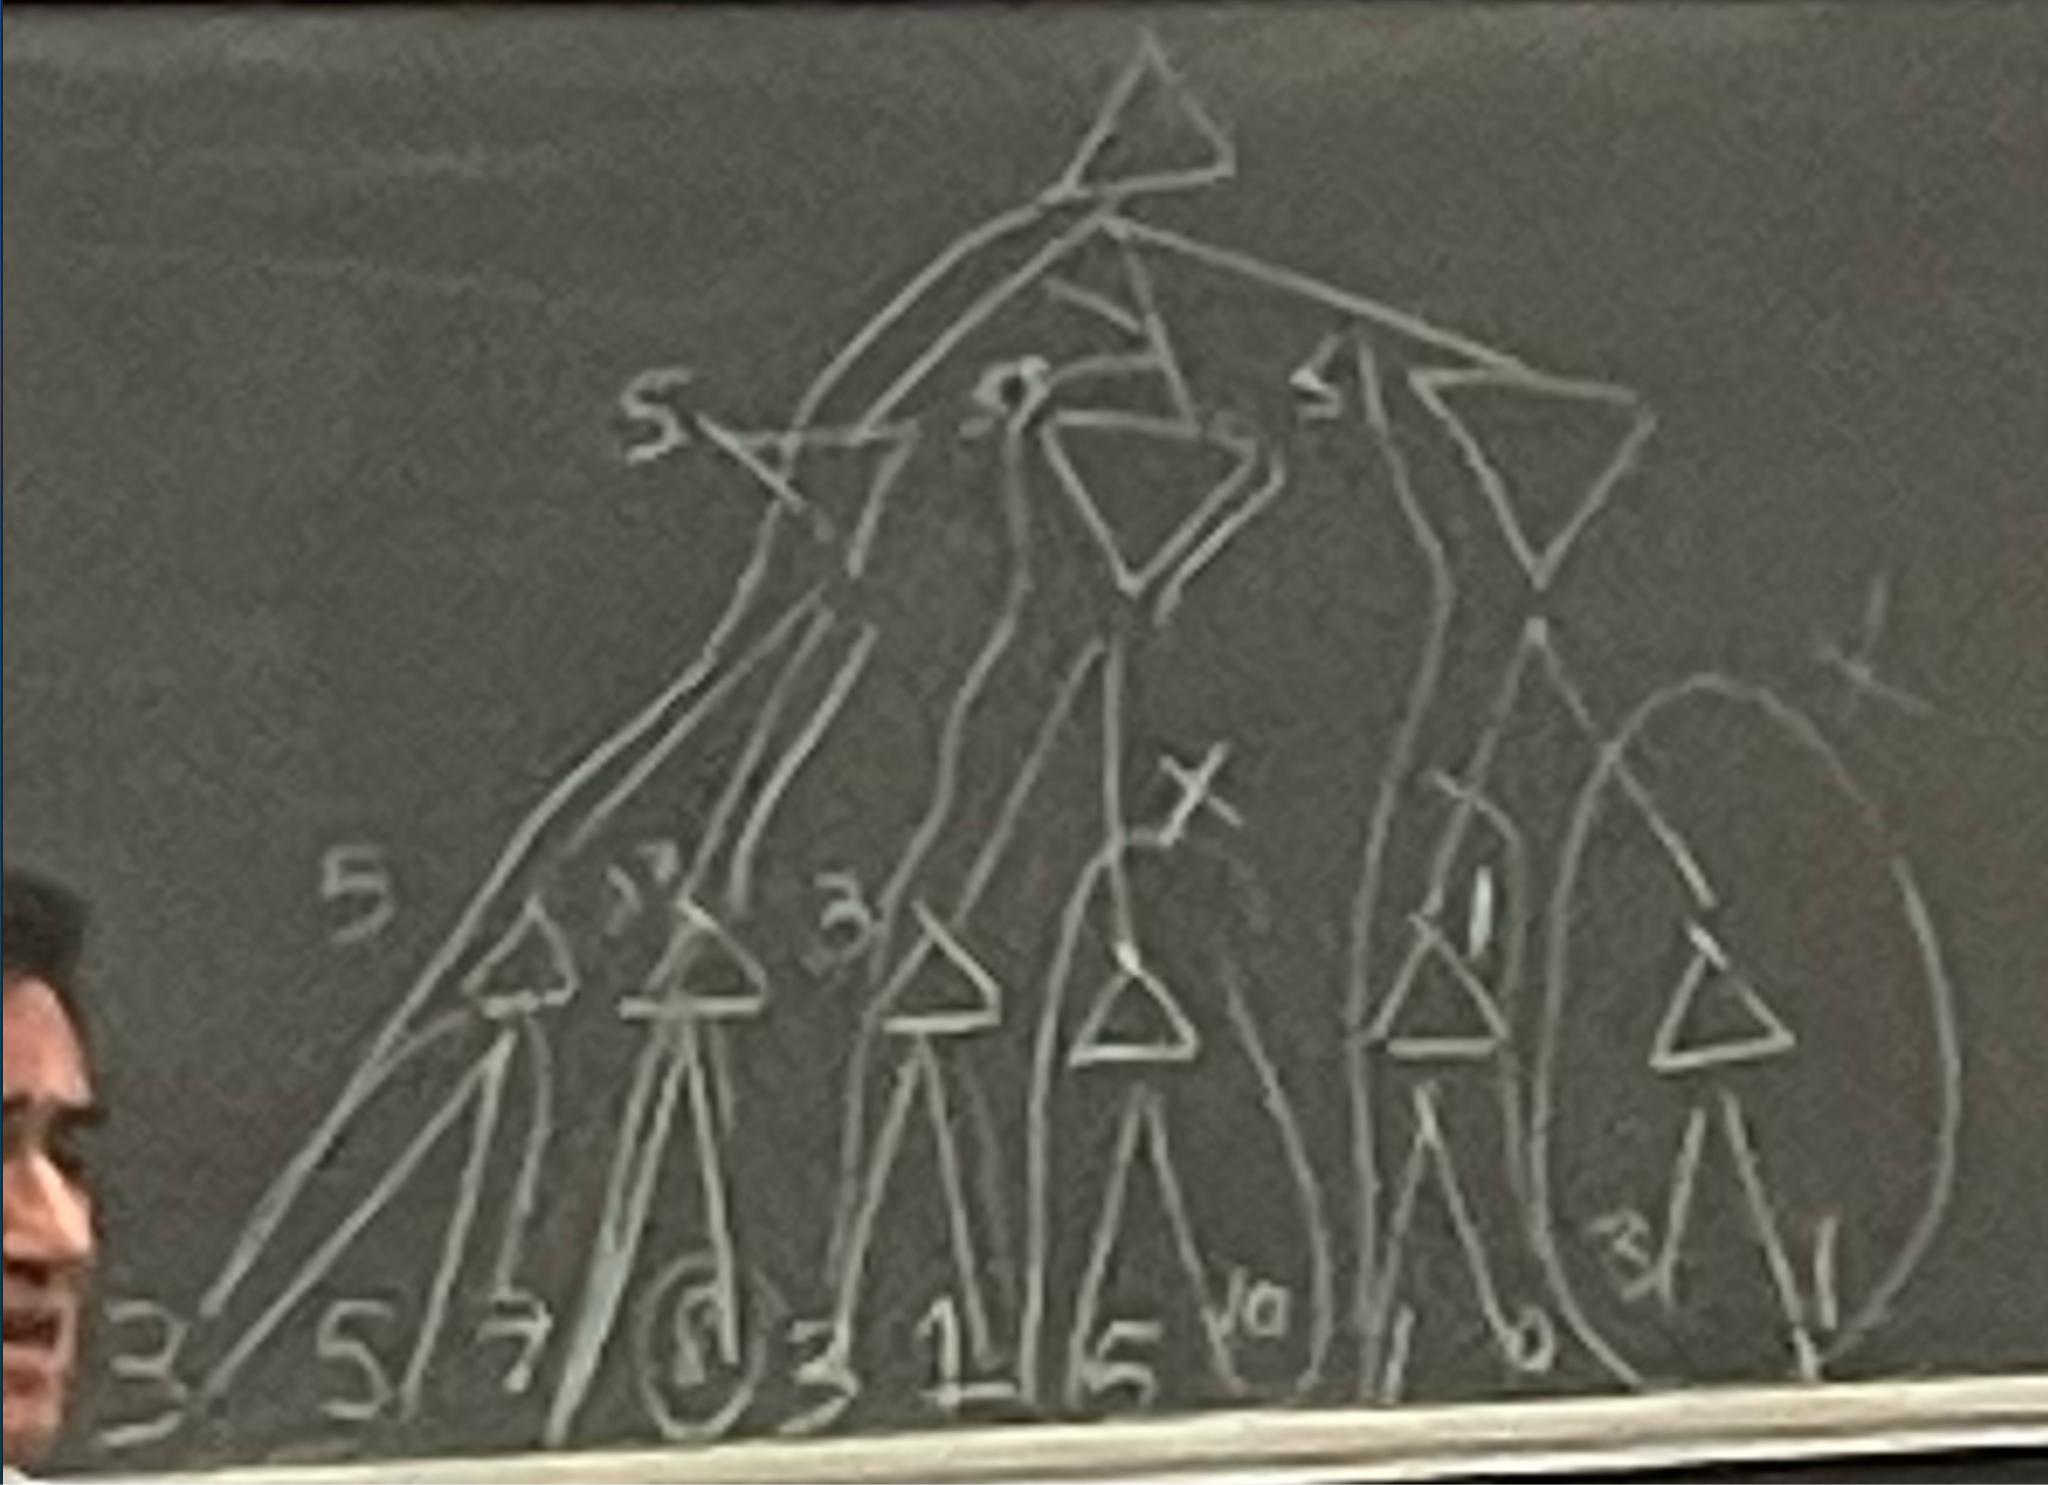 5 5
5 3 1
3 5 7 8 3 1 5 10 1 0 3 1